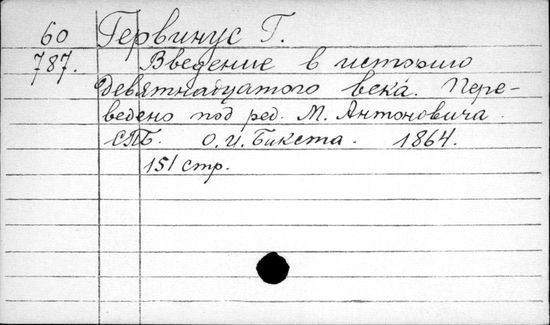 60 Гервинус Г.
787. Введение в историю
девятнадцатого века. Пере-
ведено под ред. М. Антоновича.
СПБ. О. И. Бакста. 1864.
151 стр.